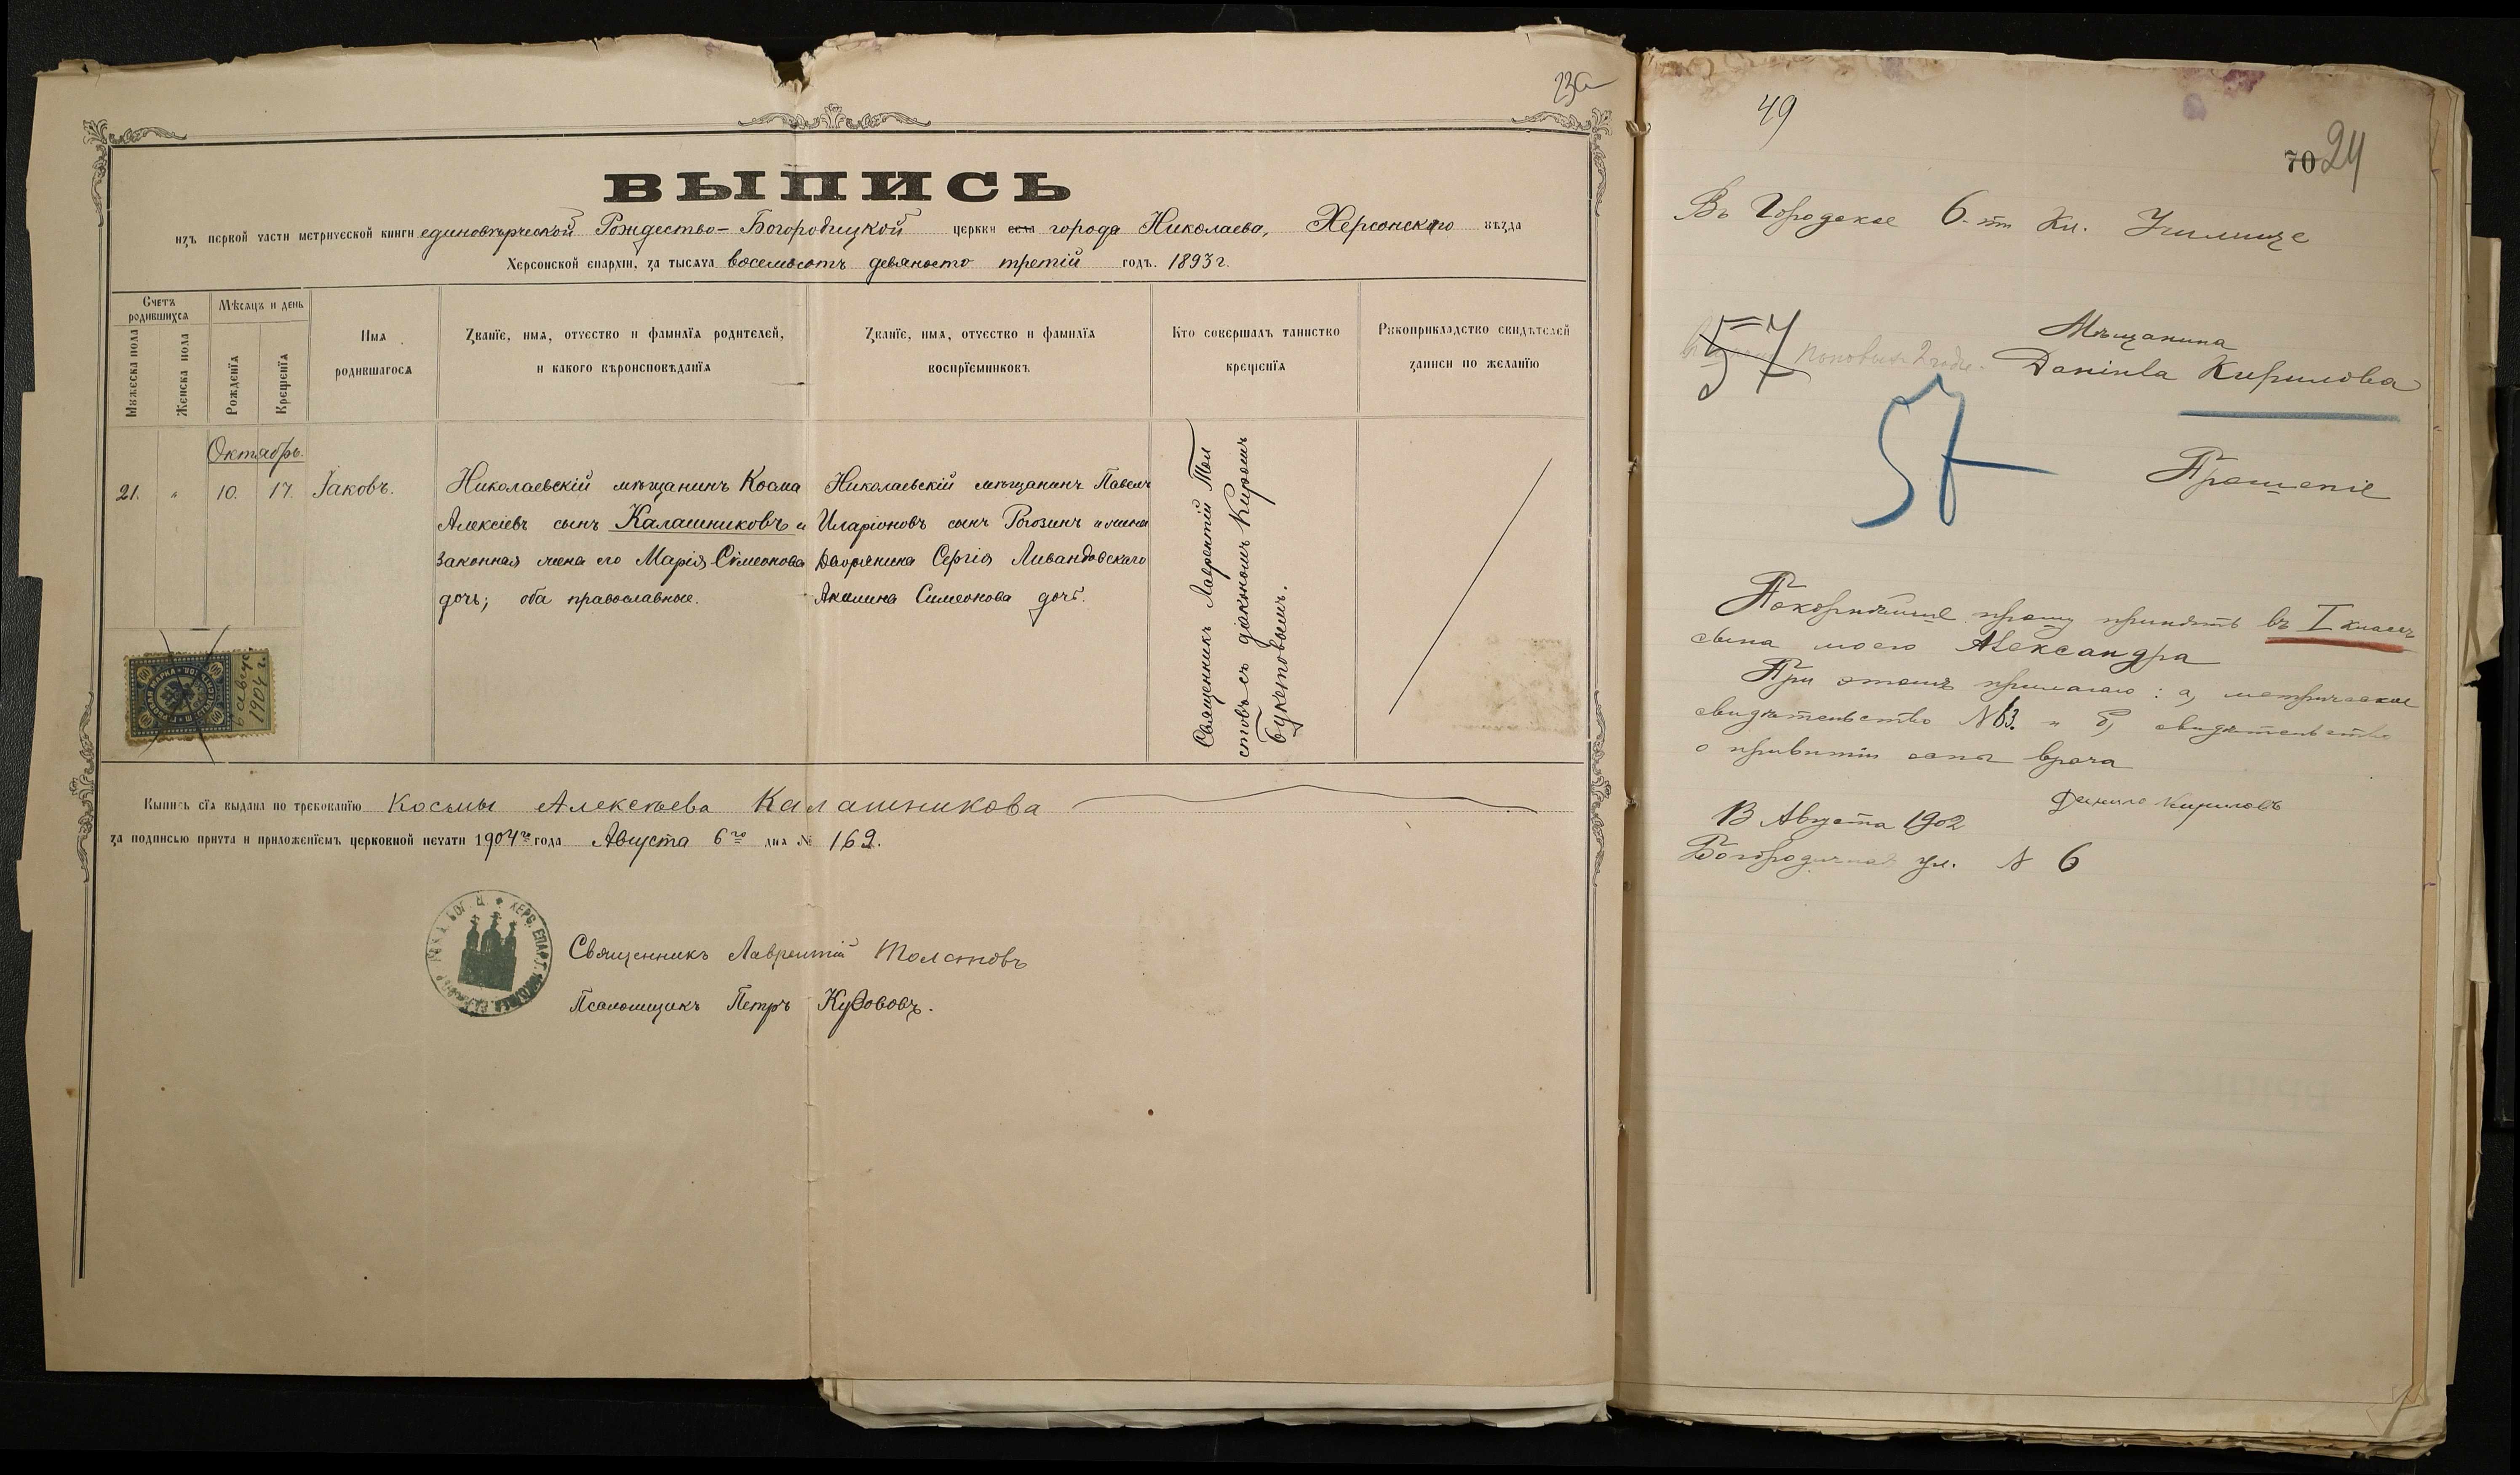 23а
ВЫПИСЬ
изъ первой части метрической книги единовѣрческой Рождество-Богородицкой церкви села города Николаева, Херсонскаго уѣзда
Херсонской епархіи, за тысяча восемьсотъ девяносто третій годъ. 1893 г.
Счетъ родившихся
Мужеска пола
Женска пола
Мѣсяцъ и день
Рожденїя
Крещенїя
Имя родившагося
Званїе, имя, отчество и фамилїя родителей, и какого вѣроисповѣданїя
Званїе, имя, отчество и фамилїя воспрїемниковъ
Кто совершалъ таинство крещенїя
Рукоприкладство свидѣтелей записи по желанїю
Октябрь.
21. " 10. 17. Іаковъ.
Николаевскій мѣщанинъ Косма
Алексіевъ сынъ Калашниковъ и
законная жена его Марія Симеонова
дочь; оба православные.
Николаевскій мѣщанинъ Павелъ
Иларіоновъ сынъ Рогозинъ и жена
дворянина Сергія Ливандовскаго
Акилина Симеонова дочь.
Священникъ Лаврентій Тол
стовъ съ діакономъ Киромъ
Букетовымъ.
60
6 август.
1904 г.
Выпись сїя выдана по требованїю Космы Алексѣева Калашникова
за подписью причта и приложенїемъ церковной печати 1904 го года Августа 6 го дня № 169.
Священникъ Лаврентій Толстовъ
Псаломщикъ Петръ
49
70 24
Въ Городское 6-ти Кл. Училище
57
Мѣщанина
Даніила Кирилова
57
Прошеніе
Покорнѣйше прошу принять въ I классъ
сына моего Александра
При этомъ прилагаю: а, метрическое
свидѣтельство № 63. и б, свидѣтельство
о привитіи оспы врача
Данило Кириловъ
13 Августа 1902
Богородичная ул. № 6